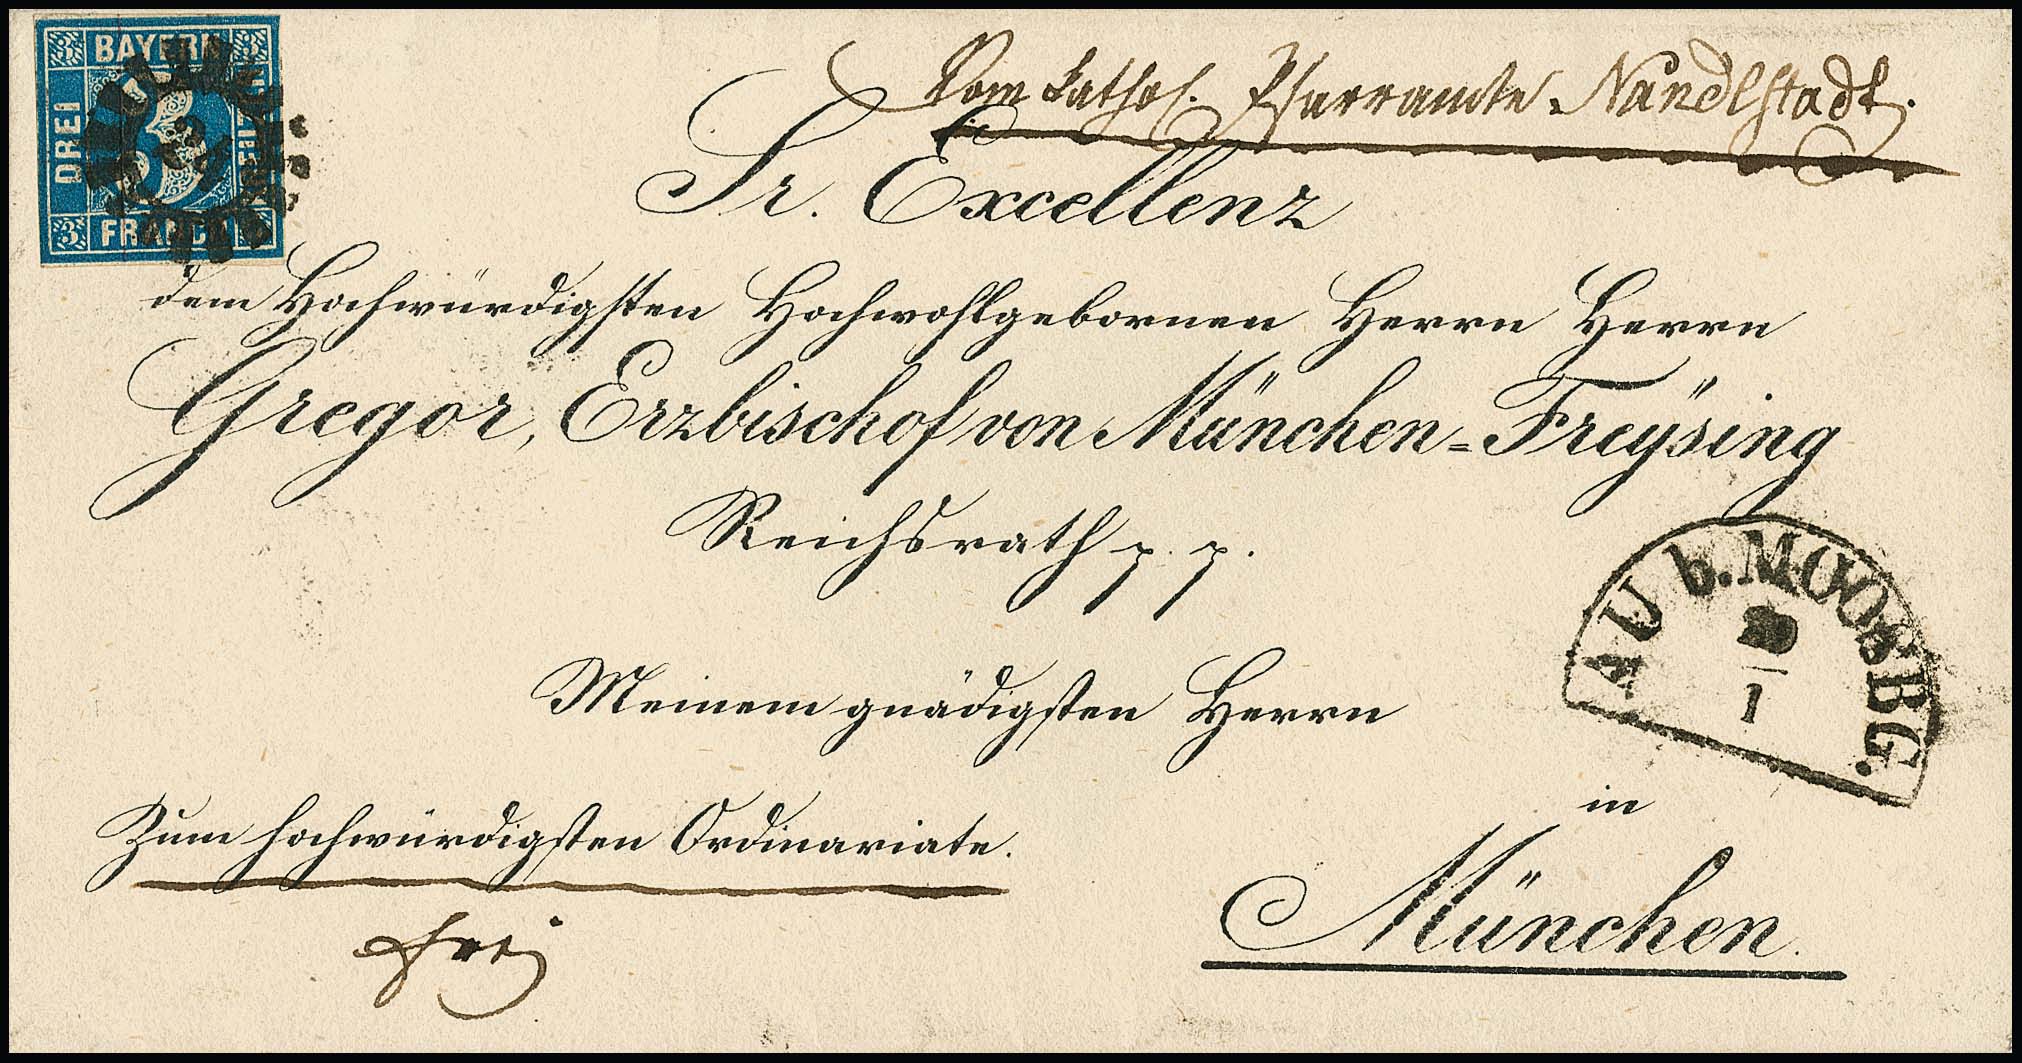 3 BAYERN 3
DREI
3
KREUZER
3 FRANCO
Vom kathol. Pfarramte Nandlstadt.
Sr. Excellenz
dem Hochwürdigsten Hochwohlgebornen Herrn Herrn
Gregor, Erzbischof von München=Freÿsing
Reichsrath p. p.
Meinem gnädigsten Herrn
AU b. MOOSBG.
1
in
Zum hochwürdigsten Ordinariate.
München.
frei